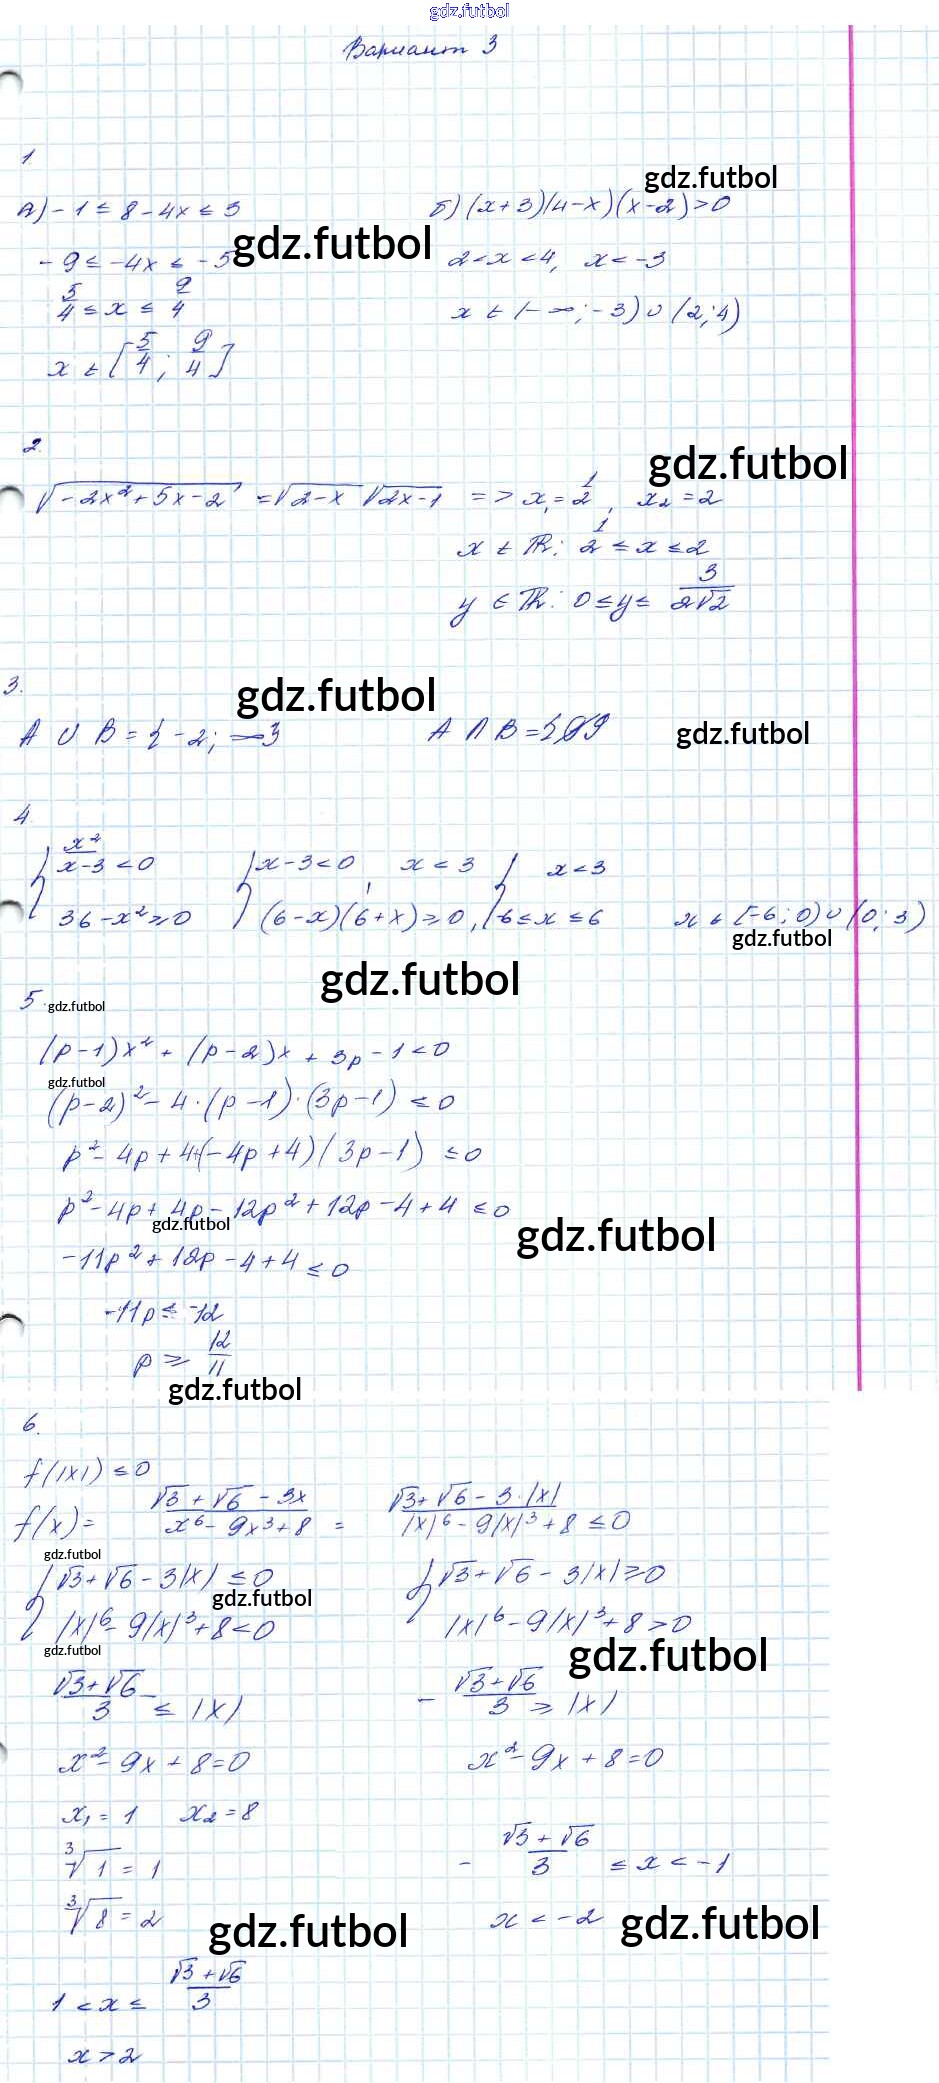 gdz.futbol
Вариант 3
1
а) -1 ≤ 8 - 4x ≤ 3
-9 ≤ -4x ≤ -5
5/4 ≤ x ≤ 9/4
x ∈ [5/4; 9/4]
gdz.futbol
б) (x+3)(4-x)(x-2) > 0
gdz.futbol
2 < x < 4, x < -3
x ∈ (-∞; -3) ∪ (2; 4)
2.
gdz.futbol
√(-2x²+5x-2) = √(2-x) √(2x-1) => x₁ = 1/2, x₂ = 2
x ∈ R: 1/2 ≤ x ≤ 2
y ∈ R: 0 ≤ y ≤ 3/(2√2)
3.
gdz.futbol
A ∪ B = {-2; —3
A ∩ B = {
gdz.futbol
4.
{ x²/(x-3) < 0
36 - x² ≥ 0
{ x-3 < 0, x < 3
(6-x)(6+x) ≥ 0,
{ x < 3
-6 ≤ x ≤ 6
x ∈ [-6; 0) ∪ (0; 3)
gdz.futbol
gdz.futbol
5. gdz.futbol
(p-1)x² + (p-2)x + 3p - 1 < 0
gdz.futbol
(p-2)² - 4·(p-1)·(3p-1) ≤ 0
p² - 4p + 4 + (-4p+4)(3p-1) ≤ 0
p² - 4p + 4p - 12p² + 12p - 4 + 4 ≤ 0
gdz.futbol
gdz.futbol
-11p² + 12p - 4 + 4 ≤ 0
-11p ≤ -12
p ≥ 12/11
gdz.futbol
6.
f(|x|) ≤ 0
f(x) = (√3 + √6 - 3x)/(x⁶ - 9x³ + 8) = (√3 + √6 - 3·|x|)/(|x|⁶ - 9|x|³ + 8) ≤ 0
gdz.futbol
{ √3 + √6 - 3|x| ≤ 0
gdz.futbol
|x|⁶ - 9|x|³ + 8 < 0
gdz.futbol
{ √3 + √6 - 3|x| ≥ 0
|x|⁶ - 9|x|³ + 8 > 0
gdz.futbol
(√3+√6)/3 ≤ |x|
- (√3+√6)/3 ≥ |x|
x² - 9x + 8 = 0
x² - 9x + 8 = 0
x₁ = 1 x₂ = 8
∛1 = 1
- (√3+√6)/3 ≤ x < -1
∛8 = 2
x < -2
gdz.futbol
gdz.futbol
1 < x ≤ (√3+√6)/3
x > 2